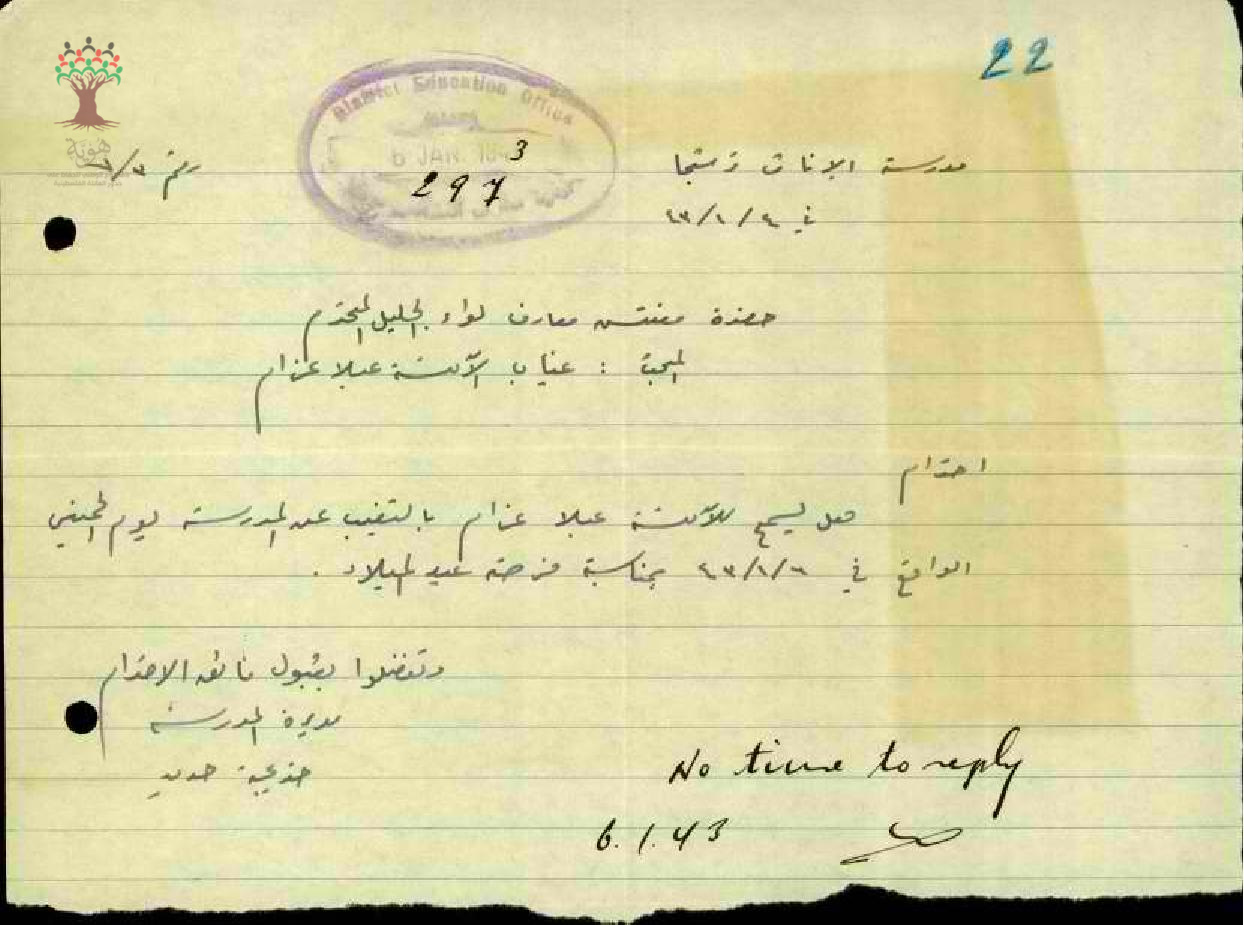 22
هوية
District Education Office
6 JAN. 1943
297
مدرسة الاناث ترشيحا
رقم ٣/٦
في ٤/١/٤٣
حضرة مفتش معارف لواء الجليل المحترم
المبحث : غياب الآنسة عبلا عزام
احترام
هل يسمح للآنسة عبلا عزام بالتغيب عن المدرسة يوم الخميس
الواقع في ٦/١/٤٣ بمناسبة فرصة عيد الميلاد .
وتفضلوا بقبول فائق الاحترام
مديرة المدرسة
خديجة حديد
No time to reply
6.1.43